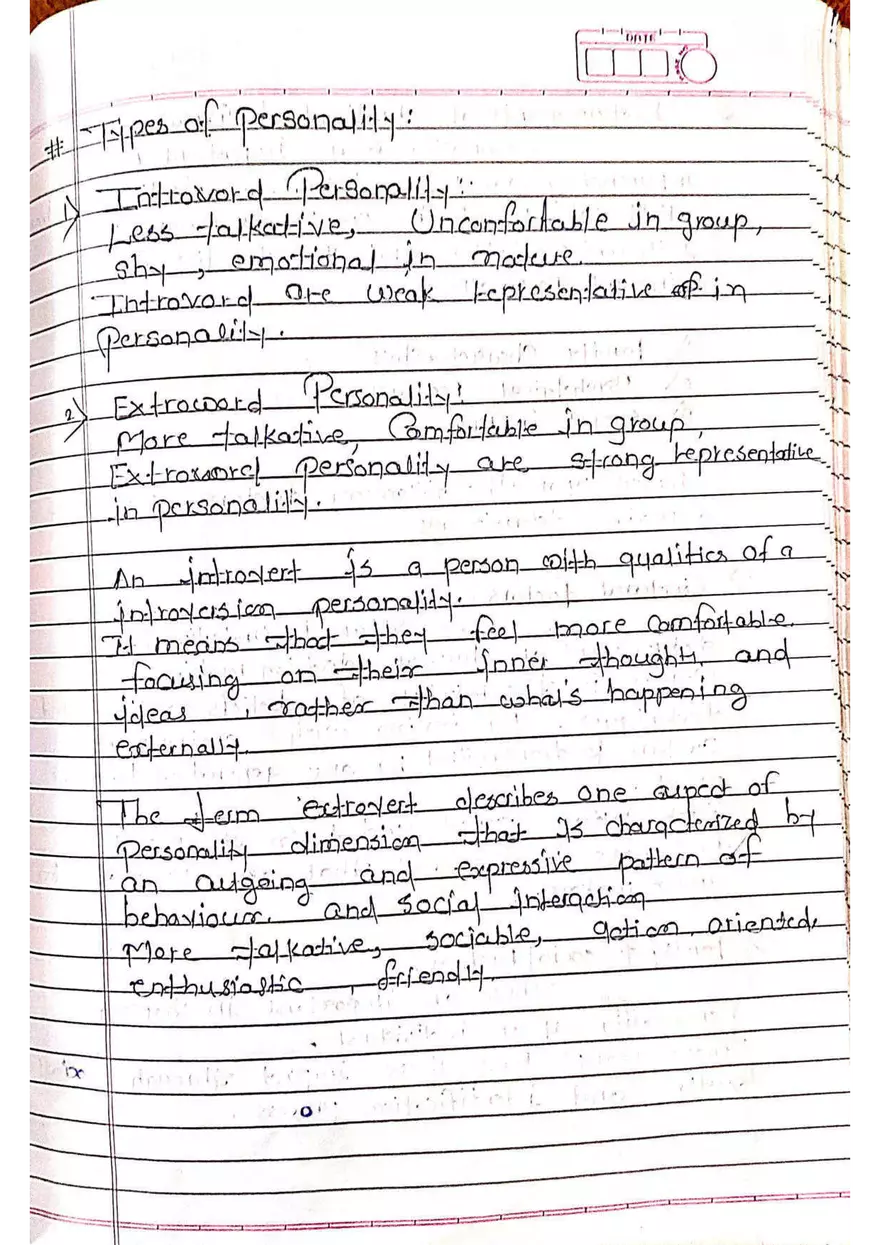 DATE
# Types of Personality:
1) Introvord Personality:
Less talkative, Unconfortable in group,
shy, emotional in nature.
Introvord are weak representative of in
Personality.
2) Extroword Personality:
More talkative, Comfortable in group,
Extroword personality are strong representative
in personality.
An introvert is a person with qualities of a
introversion personality.
It means that they feel more comfortable
focusing on their inner thoughts and
ideas, rather than what's happening
externally.
The term extrovert describes one aspect of
Personality dimension that is characterized by
an outgoing and expressive pattern of
behaviour and social interaction
More talkative, sociable, action oriented,
enthusiastic, friendly.